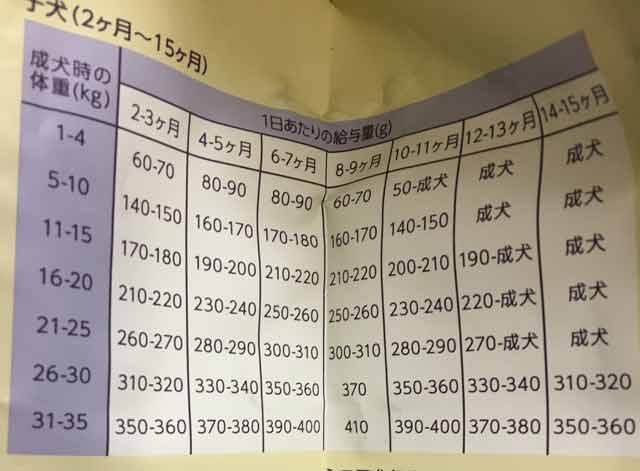 子犬(2ヶ月～15ヶ月)
成犬時の
体重(kg)
1日あたりの給与量(g)
2-3ヶ月 4-5ヶ月 6-7ヶ月 8-9ヶ月 10-11ヶ月 12-13ヶ月 14-15ヶ月
1-4 60-70 80-90 80-90 60-70 50-成犬 成犬 成犬
5-10 140-150 160-170 170-180 160-170 140-150 成犬 成犬
11-15 170-180 190-200 210-220 210-220 200-210 190-成犬 成犬
16-20 210-220 230-240 250-260 250-260 230-240 220-成犬 成犬
21-25 260-270 280-290 300-310 300-310 280-290 270-成犬 成犬
26-30 310-320 330-340 350-360 370 350-360 330-340 310-320
31-35 350-360 370-380 390-400 410 390-400 370-380 350-360